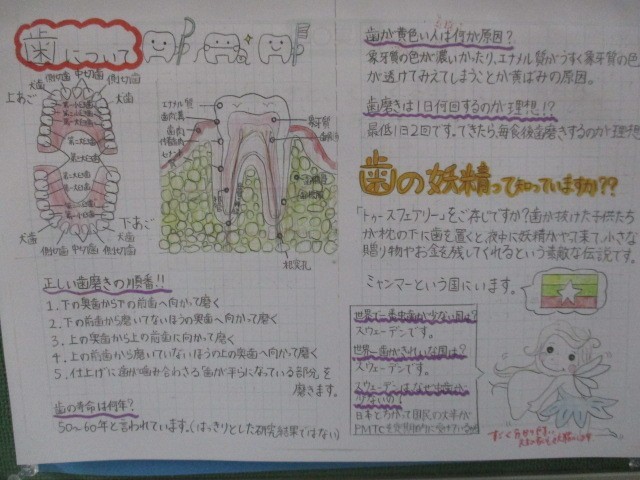 歯について
側切歯 中切歯 側切歯
犬歯 犬歯
上あご
第一小臼歯
第二小臼歯
第一大臼歯
第二大臼歯
下あご
犬歯 犬歯
側切歯 中切歯 側切歯
エナメル質
歯肉
象牙質
根尖孔
正しい歯磨きの順番!!
1. 下の奥歯から下の前歯へ向かって磨く
2. 下の前歯から磨いてないほうの奥歯へ向かって磨く
3. 上の奥歯から上の前歯に向かって磨く
4. 上の前歯から磨いていないほうの上の奥歯へ向かって磨く
5. 仕上げに歯が噛み合わさる(歯が平らになっている部分)を
磨きます。
歯の寿命は何年?
50〜60年と言われています。(はっきりとした研究結果ではない)
歯が黄色い人は何が原因?
象牙質の色が濃いかたり、エナメル質がうすく象牙質の色
が透けてみえてしまうことが黄ばみの原因。
歯磨きは1日何回するのが理想!?
最低1日2回です。できたら、毎食後歯磨きするのが理想
歯の妖精って知っていますか??
「トゥースフェアリー」をご存じですか?歯が抜けた子供たち
が枕の下に歯を置くと、夜中に妖精がやって来て、小さな
贈り物やお金を残してくれるという素敵な伝説です。
ミャンマーという国にいます。
世界で一番虫歯が少ない国は?
スウェーデンです。
世界一歯がきれいな国は?
スウェーデンです。
スウェーデンはなぜ虫歯が
少ないの?
日本とちがって国民の大半が
PMTCを定期的に受けているから